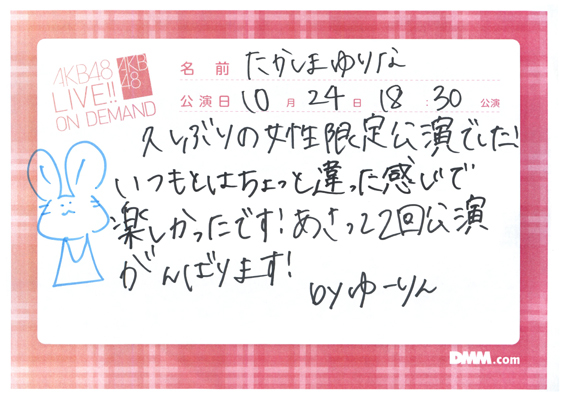 AKB48
LIVE!!
ON DEMAND
AKB
48
名前 たかしまゆりな
公演日 10月24日 18:30公演
久しぶりの女性限定公演でした!
いつもとはちょっと違った感じで
楽しかったです!あさって2回公演
がんばります!
byゆーりん
DMM.com